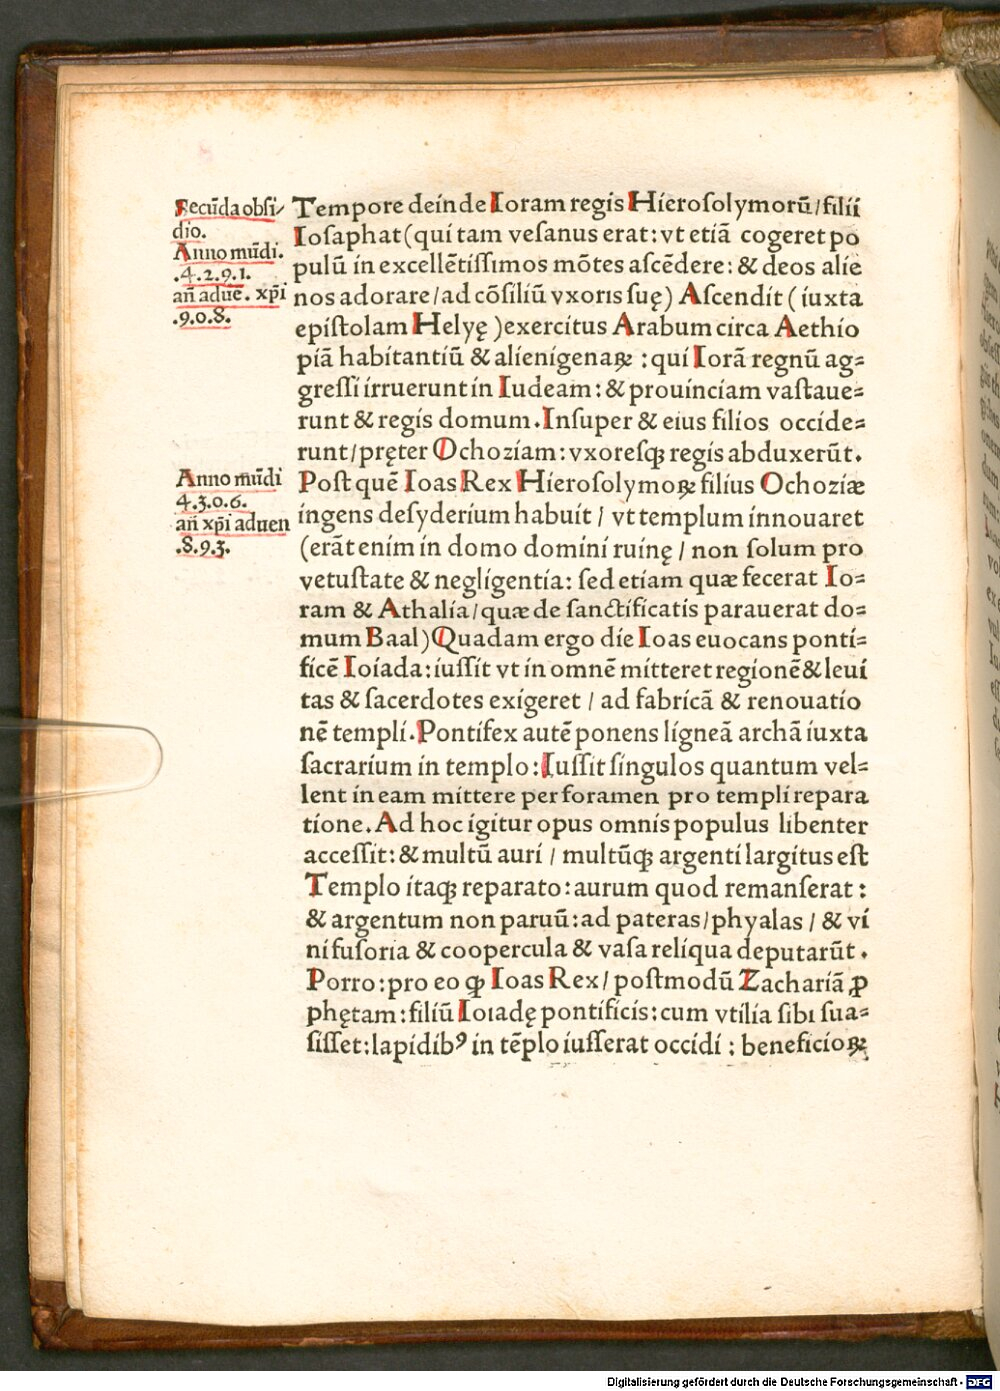 Secūda obsi/
dio.
Anno mūdi.
.4.2.9.1.
añ adue. xp̄i
.9.0.8.
Tempore deinde Ioram regis Hierosolymorū/filii
Iosaphat(qui tam vesanus erat: vt etiā cogeret po
pulū in excellētissimos mōtes ascēdere: & deos alie
nos adorare/ad cōsiliū vxoris suę) Ascendit (iuxta
epistolam Helyę )exercitus Arabum circa Aethio
piā habitantiū & alienigenaꝝ : qui Iorā regnū ag=
gressi irruerunt in Iudeam: & prouinciam vastaue=
runt & regis domum. Insuper & eius filios occide=
runt/pręter Ochoziam: vxoresqꝫ regis abduxerūt.
Anno mūdi
4.3.0.6.
añ xp̄i aduen
.8.9.3.
Post quē Ioas Rex Hierosolymoꝝ filius Ochoziæ
ingens desyderium habuit / vt templum innouaret
(erāt enim in domo domini ruinę / non solum pro
vetustate & negligentia: sed etiam quæ fecerat Io=
ram & Athalia/quæ de sanctificatis parauerat do=
mum Baal)Quadam ergo die Ioas euocans ponti=
ficē Ioiada: iussit vt in omnē mitteret regionē & leui
tas & sacerdotes exigeret / ad fabricā & renouatio
nē templi. Pontifex autē ponens ligneā archā iuxta
sacrarium in templo: Iussit singulos quantum vel=
lent in eam mittere per foramen pro templi repara
tione. Ad hoc igitur opus omnis populus libenter
accessit: & multū auri / multūqꝫ argenti largitus est
Templo itaqꝫ reparato: aurum quod remanserat :
& argentum non paruū: ad pateras/phyalas / & vi
ni fusoria & coopercula & vasa reliqua deputarūt .
Porro: pro eo ꝙ Ioas Rex/ postmodū Zachariā ꝓ
phętam: filiū Ioiadę pontificis: cum vtilia sibi sua=
sisset: lapidibꝰ in tēplo iusserat occidi : beneficioꝝ
Digitalisierung gefördert durch die Deutsche Forschungsgemeinschaft - DFG